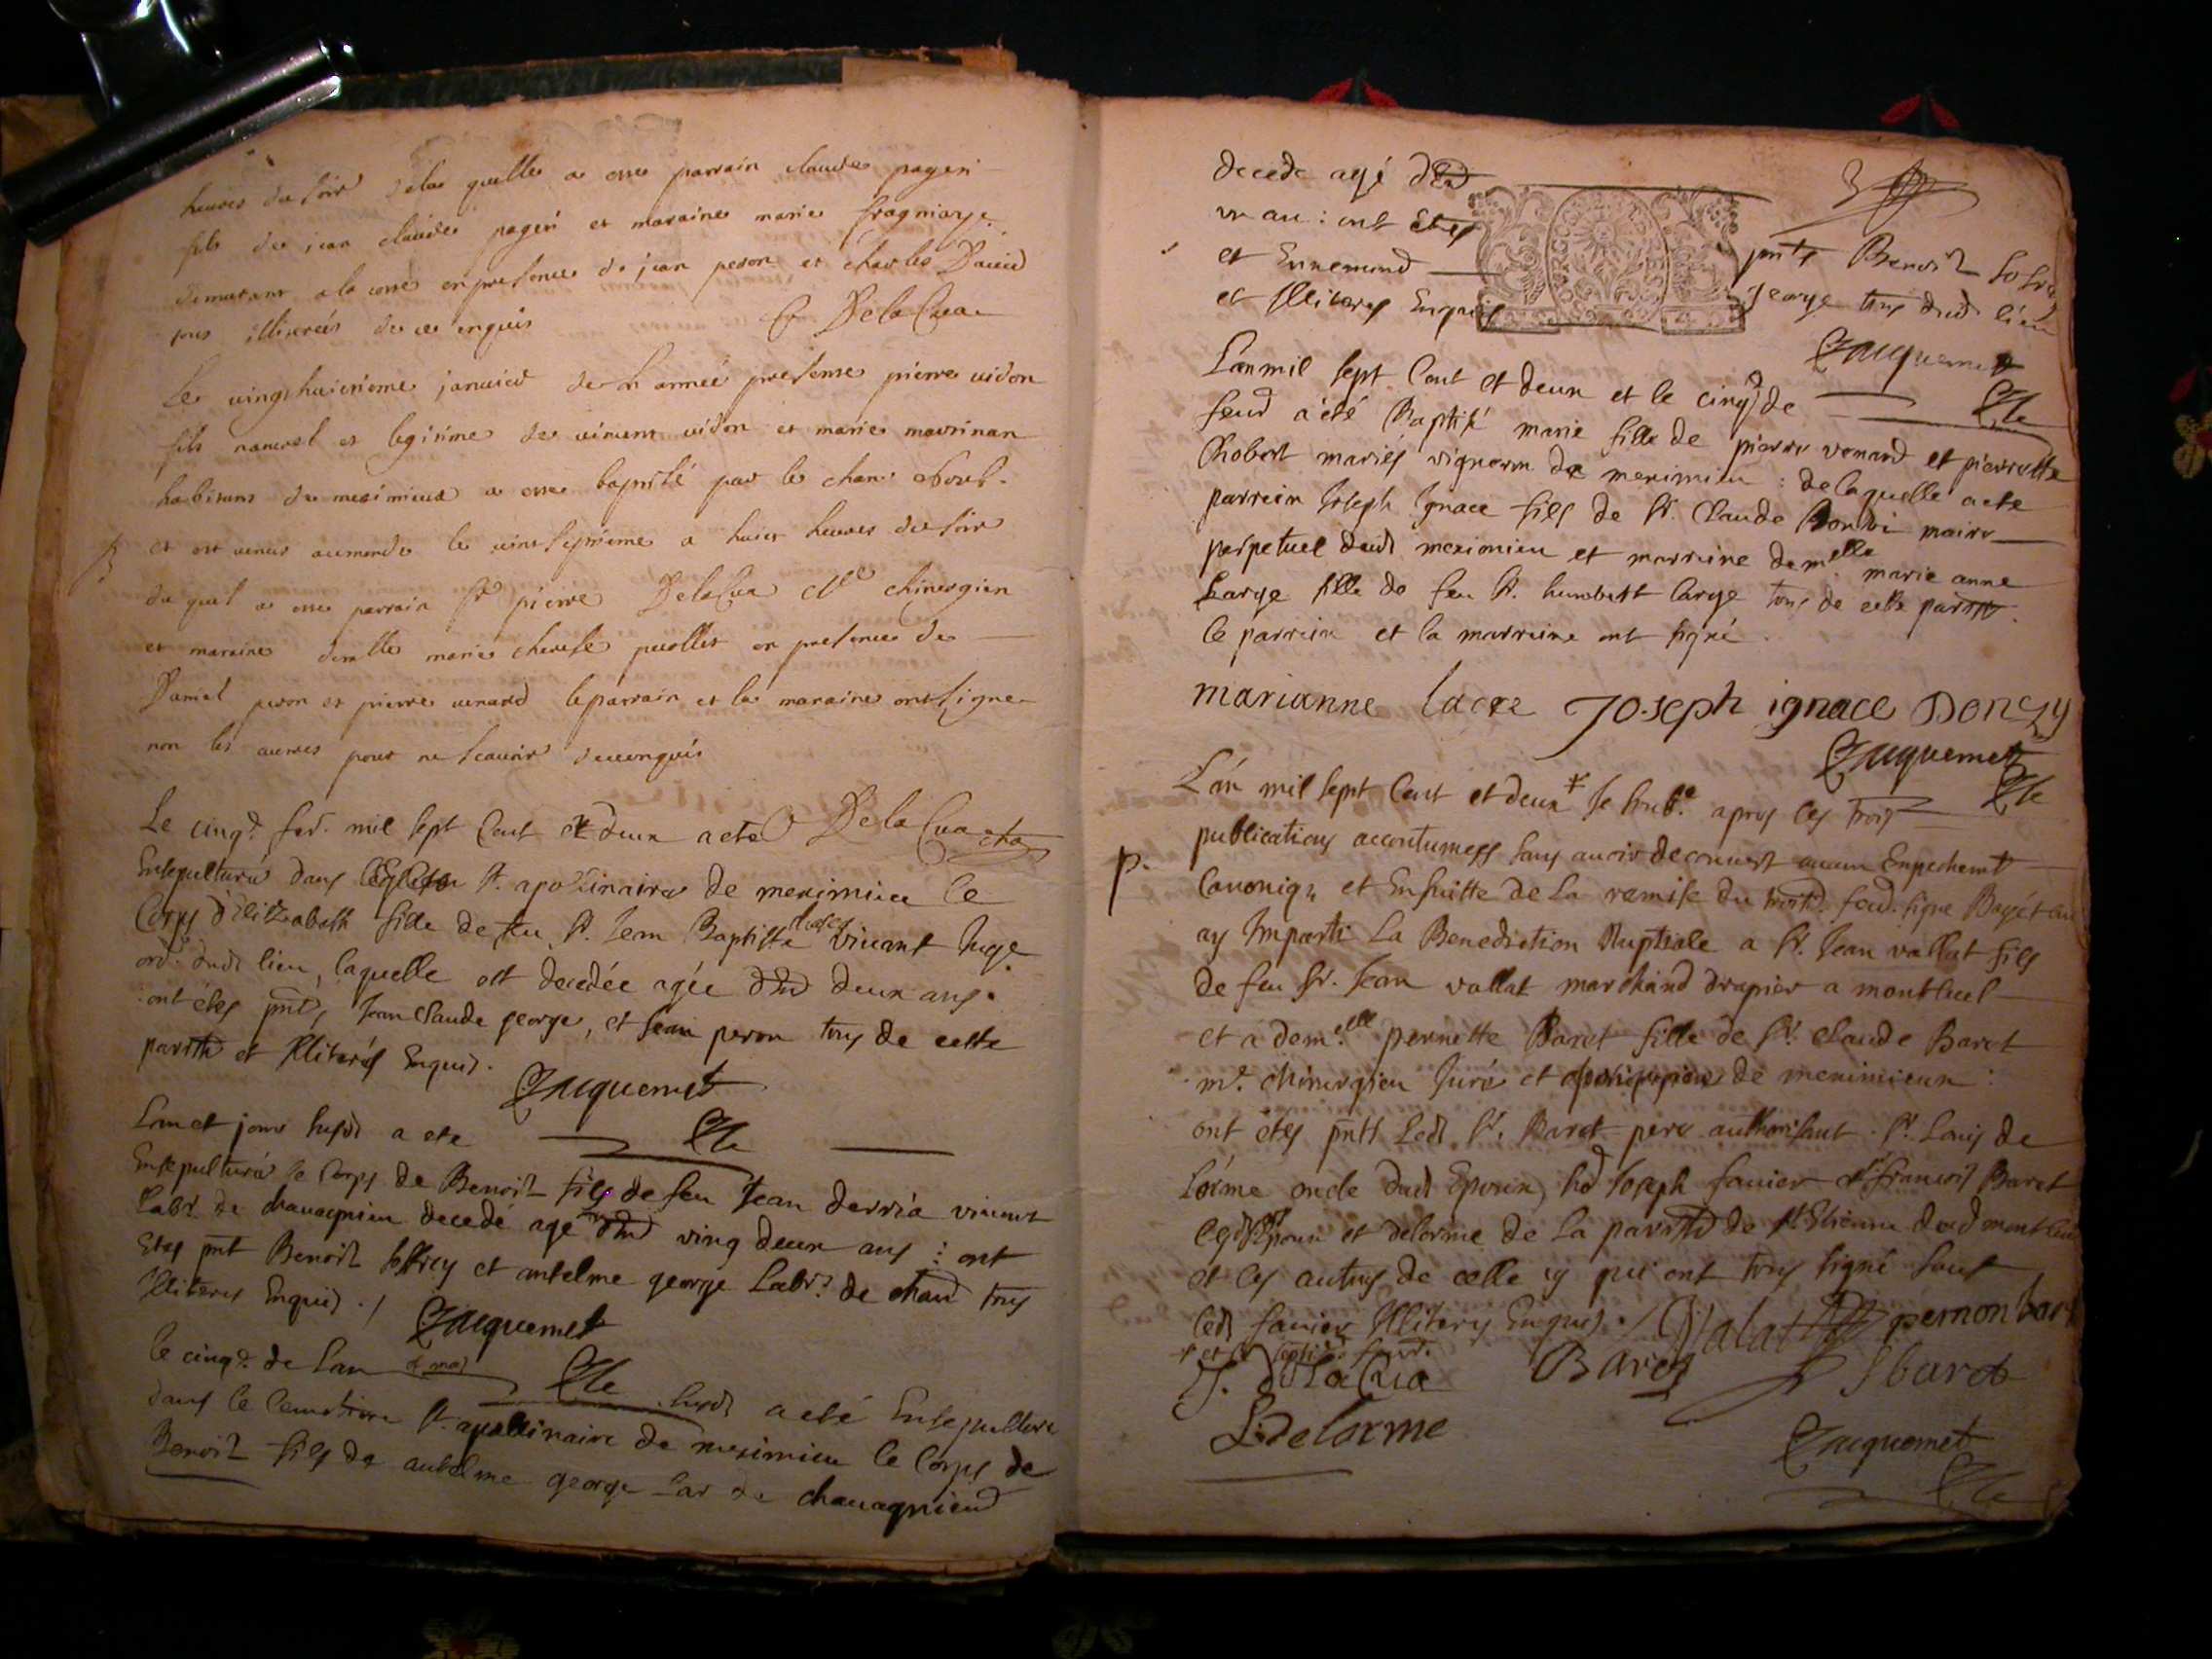 heures du soir de la quelle a esté parrain claude pageri
fils de jean claude pageri et maraine marie fragniary
demurant a la coste en presence de jean peron et charles David
tous illiterés de ce enquis
Delacua
Le vingt huictiéme janvier de l'année presente pierre vidon
fils naturel et legitime de vincent vidon et marie maurinan
habitans de meximieux a esté baptisé par le chan.
et est venus au monde le vint septiéme a huict heures du soir
du quel a esté parrain Sr pierre Delacua Me chirurgien
et maraine dmlle marie therese peollet en presence de
Daniel peron et pierre venard le parrain et la maraine ont signe
non les autres pour ne scavoir de ce enquis
Delacua cha
Le cinq. fev. mil sept Cent et deux a eté
Ensepulturé dans St. apolinaire de meximieu le
Corps d'Elitzabeth fille de feu Sr. Jean Baptiste vivant Juge
ord. dudt lieu, laquelle est decedée agée deux ans.
ont étés pnts, Jean Claude george, et Jean peron tous de cette
parsse et Illiterés Enquis.
Jacquemet
Lan et jour susdt a ete
Ensepulturé le Corps de Benoit fils de feu Jean derria vivant
Labr. de chavagnieu decedé agé vingt deux ans : ont
Etes pnt Benoit Joffrey et antelme george Labr. de chav tous
Illiteres Enquis ./ Jacquemet
le cinq. de Lan susdt a eté Ensepulture
dans le Cemetiere St. apollinaire de meximieu le Corps de
Benoit fils de antelme george Lar de chavagnieu
3
decede agé
un an : ont Etes pnts Benoit Jofrey
et Ennemond George tous dud lieu
et Illiteres Enquis
Jacquemet
Lanmil sept Cent et deux et le cinq de
feud a été Baptisé marie fille de pierre venard et pierrette
Chobert mariés vigneron de meximieu : de laquelle a ete
parrein Joseph Ignace fils de Sr. Claude Donzi maire
perpetuel dudt meximieu et marreine demelle marie anne
Large fille de feu Sr. humbert large tous de cette parsse.
le parrein et la marreine ont signé.
marianne lacre Joseph ignace Donczy
Jacquemet
L'an mil sept Cent et deux * Je soub.e apres les trois
p.
publications accoutumees sans avoir decouvert aucun Empechemt
Canoniq. et Ensuitte de la remise du feud. signe
ay Imparti La Benediction Nuptiale a Sr. Jean vallat fils
de feu Sr. Jean vallat marchand drapier a montluel
et a demelle pernette Baret fille de Sr. Claude Baret
me. chirurgien Juré et de meximieux :
ont étes pnts Ledt Sr. Baret pere authorisant . Sr. Louis de
Lorme oncle dudt Epoux, hd Joseph favier et francois Baret
lesd Epoux et delorme de La parsse de St Etienne dud montluel
et les autres de celle cy qui ont tous signé sauf
ledt favier Illiterés Enquis ./ Valat pernon bart
* et le septie. feud.
J. Delacua Baret Jbaret
L. delorme
Jacquemet